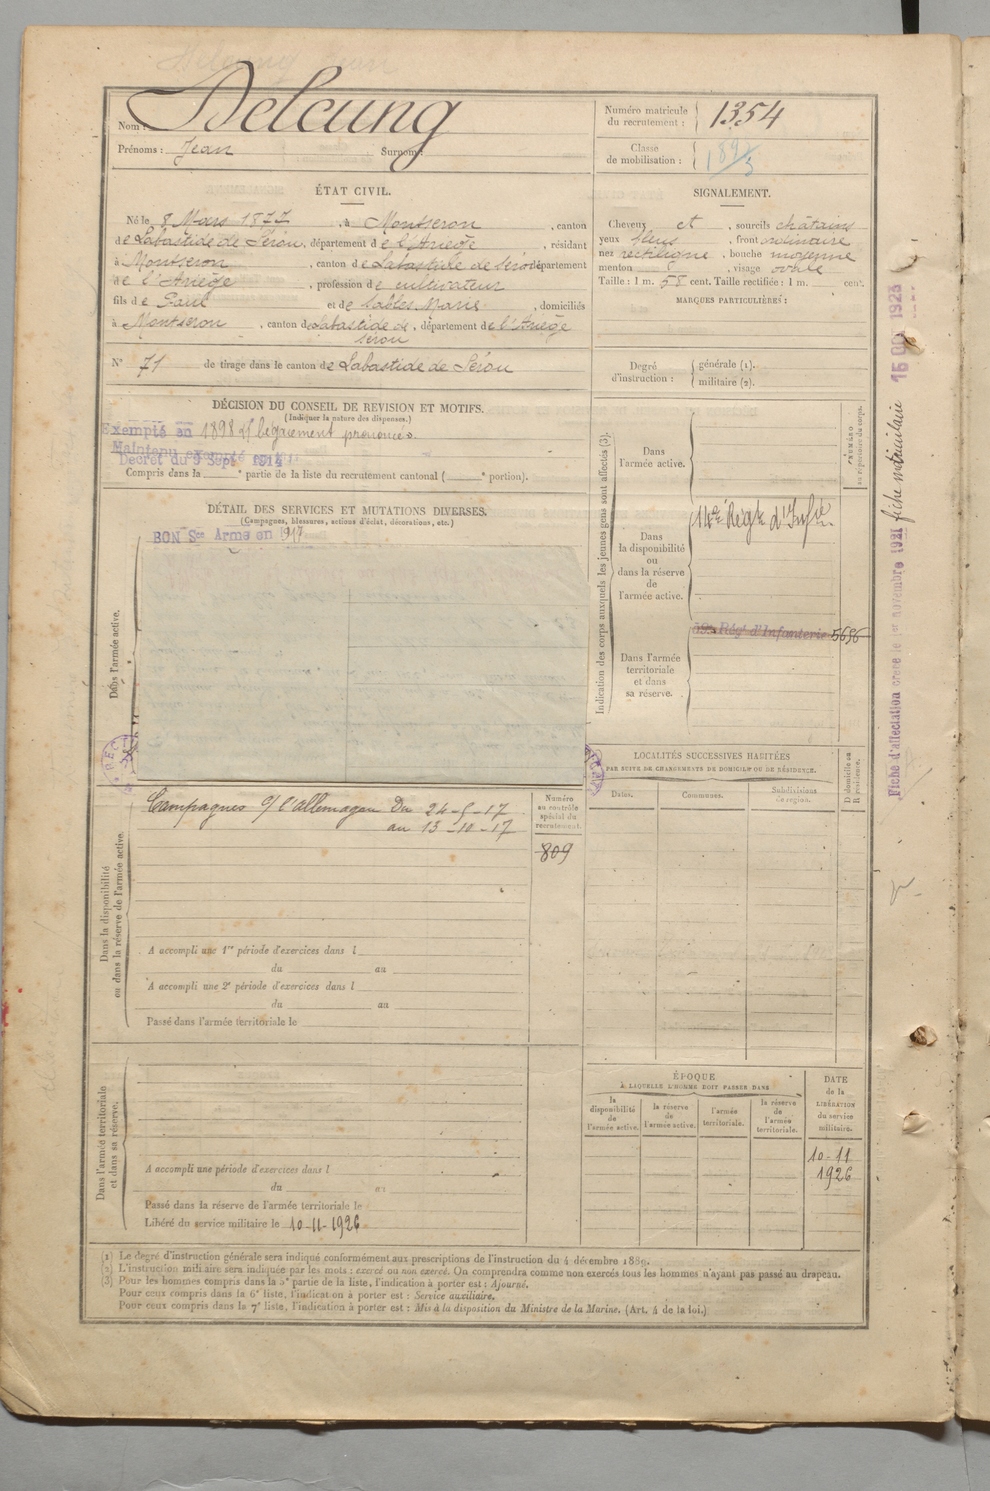 Nom : Delcung
Prénoms : Jean Surnom :
Numéro matricule
du recrutement : 1354
Classe
de mobilisation :
ÉTAT CIVIL.
Né le 8 Mars 1877, à Montseron, canton
de Labastide de Sérou, département de l'Ariège, résidant
à Montseron, canton de Labastide de Sérou département
de l'Ariège, profession de cultivateur
fils de Paul et de Marie, domiciliés
à Montseron, canton de Labastide de, département de l'Ariège
Sérou
N° 71 de tirage dans le canton de Labastide de Sérou
SIGNALEMENT.
Cheveux et, sourcils châtains
yeux bleus, front ordinaire
nez rectiligne, bouche moyenne
menton, visage ovale
Taille : 1 m. 58 cent. Taille rectifiée : 1 m. cent.
MARQUES PARTICULIÈRES :
Degré
d'instruction :
générale (1).
militaire (2).
DÉCISION DU CONSEIL DE REVISION ET MOTIFS.
(Indiquer la nature des dispenses.)
Exempté en 1898 bégaiement prononcé.
Maintenu exempté
Décret du 9 Sept 1914
Compris dans la e partie de la liste du recrutement cantonal ( e portion).
DÉTAIL DES SERVICES ET MUTATIONS DIVERSES.
(Campagnes, blessures, actions d'éclat, décorations, etc.)
BON Sce Armé en 1917
Dans l'armée active.
Indication des corps auxquels les jeunes gens sont affectés (3).
NUMÉRO
au répertoire du corps.
Dans
l'armée active.
14e Régt d'Infie
Dans
la disponibilité
ou
dans la réserve
de
l'armée active.
Régt d'Infanterie 5656
Dans l'armée
territoriale
et dans
sa réserve.
LOCALITÉS SUCCESSIVES HABITÉES
PAR SUITE DE CHANGEMENTS DE DOMICILE OU DE RÉSIDENCE.
D domicile ou
R résidence.
Dates.
Communes.
Subdivisions
de région.
Campagnes c/ l'Allemagne Du 24-5-17
au 13-10-17
Numéro
au contrôle
spécial du
recrutement.
809
Dans la disponibilité
ou dans la réserve de l'armée active.
A accompli une 1re période d'exercices dans l
du au
A accompli une 2e période d'exercices dans l
du au
Passé dans l'armée territoriale le
Dans l'armée territoriale
et dans sa réserve.
A accompli une période d'exercices dans l
du au
Passé dans la réserve de l'armée territoriale le
Libéré du service militaire le 10-11-1926
ÉPOQUE
À LAQUELLE L'HOMME DOIT PASSER DANS
la
disponibilité
de
l'armée active.
la réserve
de
l'armée active.
l'armée
territoriale.
la réserve
de
l'armée
territoriale.
DATE
de la
LIBÉRATION
du service
militaire.
10-11
1926
(1) Le degré d'instruction générale sera indiqué conformément aux prescriptions de l'Instruction du 4 décembre 1889.
(2) L'instruction militaire sera indiquée par les mots : exercé ou non exercé. On comprendra comme non exercés tous les hommes n'ayant pas passé au drapeau.
(3) Pour les hommes compris dans la 5e partie de la liste, l'indication à porter est : Ajourné.
Pour ceux compris dans la 6e liste, l'indication à porter est : Service auxiliaire.
Pour ceux compris dans la 7e liste, l'indication à porter est : Mis à la disposition du Ministre de la Marine. (Art. 4 de la loi.)
Fiche d'affectation créée le 1er novembre 1921 fiche matriculaire 1923